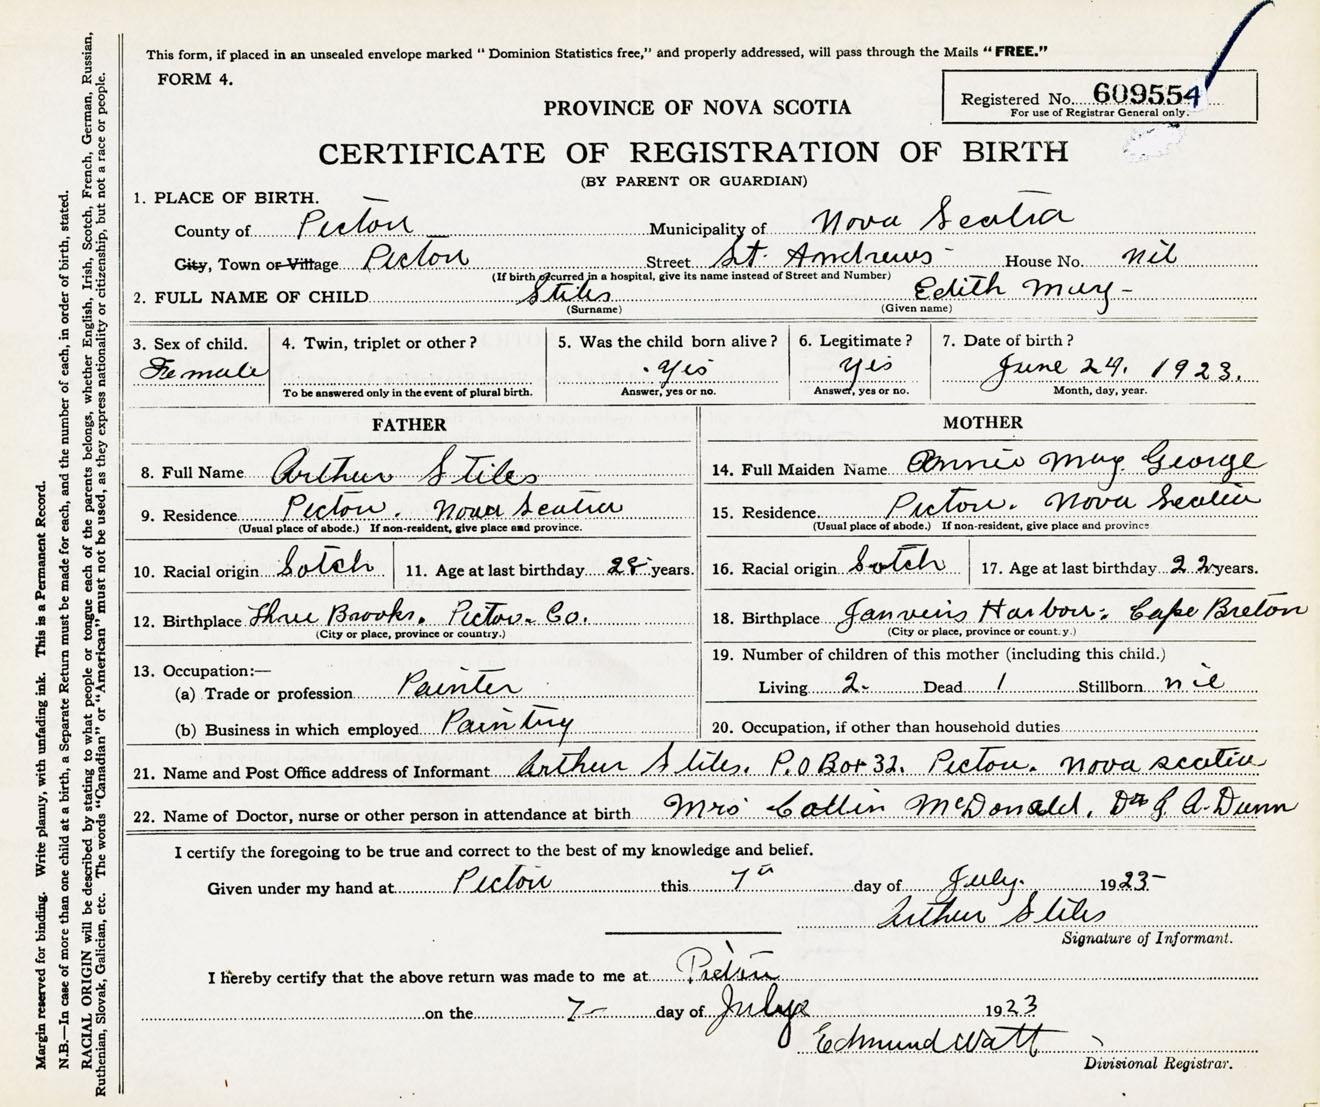 This form, if placed in an unsealed envelope marked “ Dominion Statistics free,” and properly addressed, will pass through the Mails “ FREE.”
FORM 4.
Registered No. 609554
For use of Registrar General only.
PROVINCE OF NOVA SCOTIA
CERTIFICATE OF REGISTRATION OF BIRTH
(BY PARENT OR GUARDIAN)
1. PLACE OF BIRTH.
County of Pictou Municipality of Nova Scotia
City, Town or Village Pictou Street St. Andrews - House No. nil
(If birth occurred in a hospital, give its name instead of Street and Number)
2. FULL NAME OF CHILD Stiles Edith May -
(Surname) (Given name)
3. Sex of child. 4. Twin, triplet or other ? 5. Was the child born alive ? 6. Legitimate ? 7. Date of birth ?
Female Yes Yes June 24. 1923.
To be answered only in the event of plural birth. Answer, yes or no. Answer, yes or no. Month, day, year.
FATHER MOTHER
8. Full Name Arthur Stiles 14. Full Maiden Name Annie May George
9. Residence Pictou. Nova Scotia 15. Residence Pictou. Nova Scotia
(Usual place of abode.) If non-resident, give place and province. (Usual place of abode.) If non-resident, give place and province
10. Racial origin Sotch 11. Age at last birthday 28 years. 16. Racial origin Sotch 17. Age at last birthday 22 years.
12. Birthplace Three Brooks. Pictou Co. 18. Birthplace Janvrins Harbour: Cape Breton
(City or place, province or country.) (City or place, province or country.)
13. Occupation:— 19. Number of children of this mother (including this child.)
(a) Trade or profession Painter Living 2. Dead 1 Stillborn nil
(b) Business in which employed Paintry 20. Occupation, if other than household duties
21. Name and Post Office address of Informant Arthur Stiles. P.O Box 32. Pictou. Nova scotia
22. Name of Doctor, nurse or other person in attendance at birth Mrs Collin McDonald. Dr G. A. Dunn
I certify the foregoing to be true and correct to the best of my knowledge and belief.
Given under my hand at Pictou this 7th day of July. 1923-
Arthur Stiles
Signature of Informant.
I hereby certify that the above return was made to me at Pictou
on the 7- day of July 1923
Edmund Watt
Divisional Registrar.
Margin reserved for binding. Write plainly, with unfading ink. This is a Permanent Record.
N.B.—In case of more than one child at a birth, a Separate Return must be made for each, and the number of each, in order of birth, stated.
RACIAL ORIGIN will be described by stating to what people or tongue each of the parents belongs, whether English, Irish, Scotch, French, German, Russian,
Ruthenian, Slovak, Galician, etc. The words “Canadian” or “American” must not be used, as they express nationality or citizenship, but not a race or people.